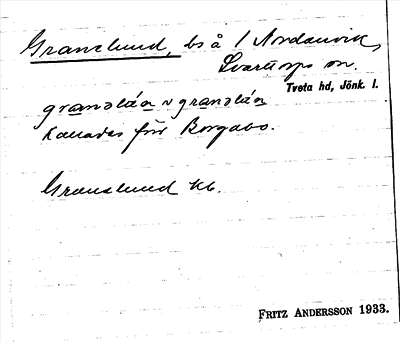 Granslund, bs å 1 Nordanvik,
Svarttorps sn.
Tveta hd, Jönk. l.
kallades för Borgabo.
Granslund kb.
FRITZ ANDERSSON 1933.